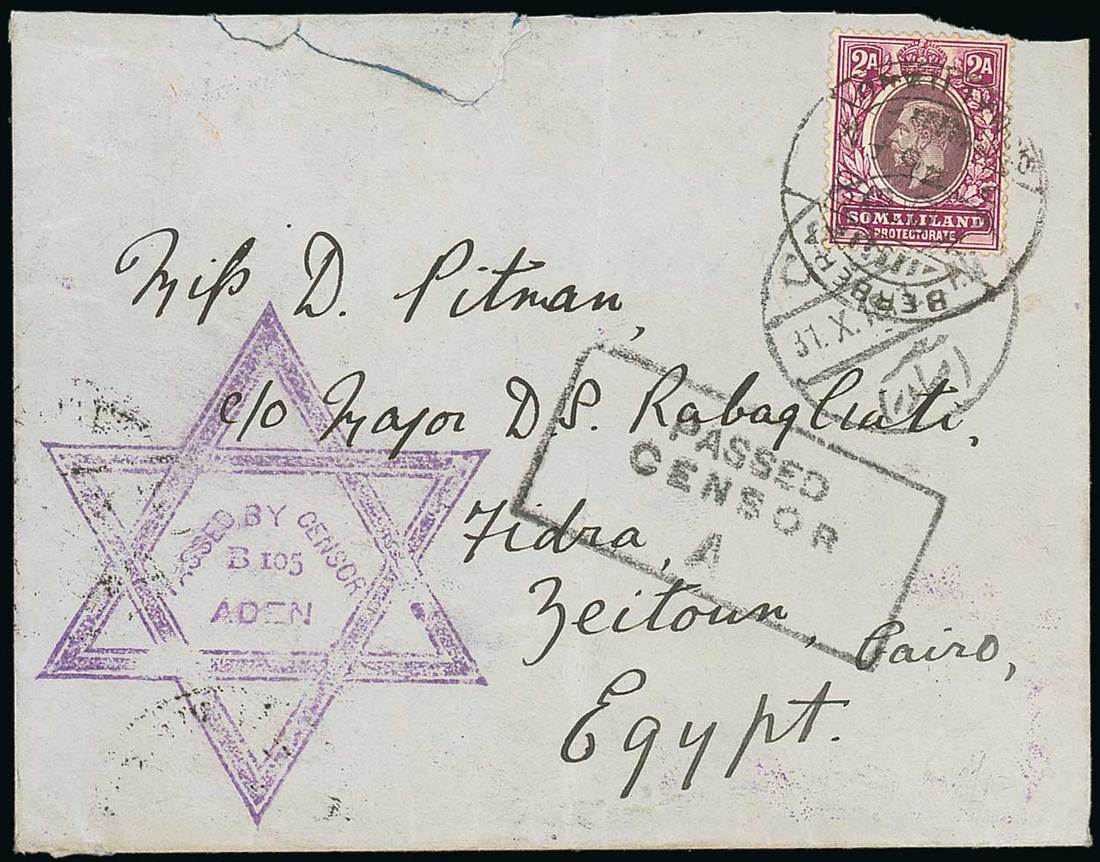 2A 2A
SOMALILAND
PROTECTORATE
BERBERA
31. X.
Miss D. Pitman,
c/o Major D.S. Rabagliati,
Fidra,
Zeitoun, Cairo,
Egypt.
PASSED
CENSOR
A
PASSED BY CENSOR
B 105
ADEN